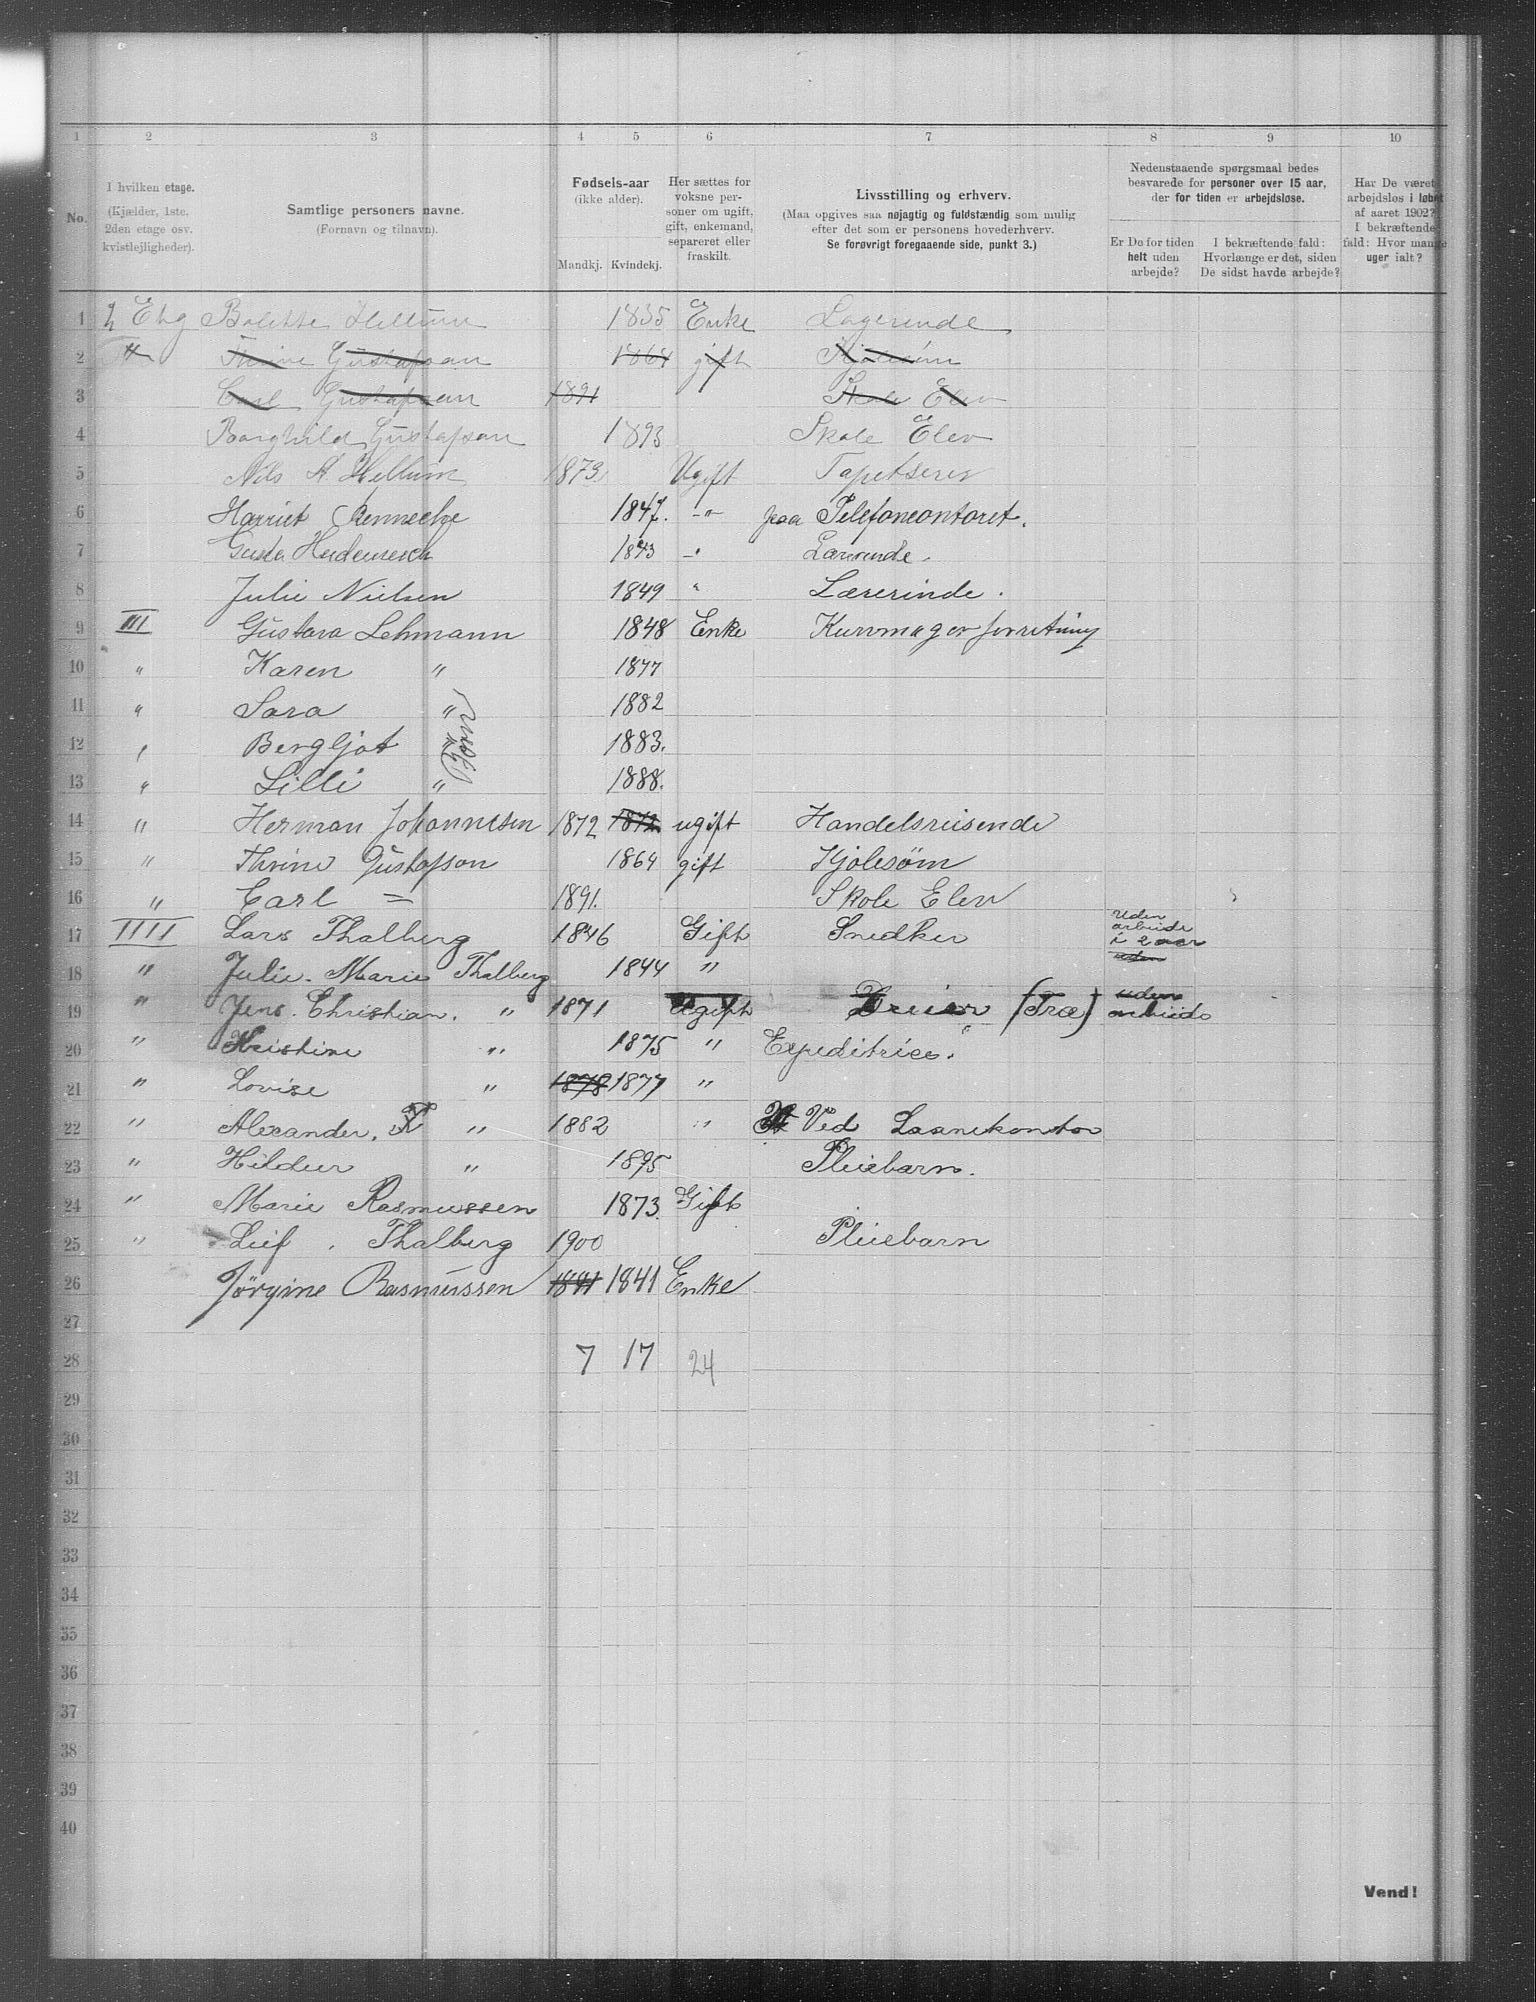 1 2 3 4 5 6 7 8 9 10
No.
I hvilken etage.
(Kjælder, 1ste,
2den etage osv.
kvistlejligheder).
Samtlige personers navne.
(Fornavn og tilnavn).
Fødsels-aar
(ikke alder).
Mandkj. Kvindekj.
Her sættes for
voksne per-
soner om ugift,
gift, enkemand,
separeret eller
fraskilt.
Livsstilling og erhverv.
(Maa opgives saa nøjagtig og fuldstændig som mulig
efter det som er personens hovederhverv.
Se forøvrigt foregaaende side, punkt 3.)
Nedenstaaende spørgsmaal bedes
besvarede for personer over 15 aar,
der for tiden er arbejdsløse.
Er De for tiden
helt uden
arbejde?
I bekræftende fald:
Hvorlænge er det, siden
De sidst havde arbejde?
Har De været
arbejdsløs i løbet
af aaret 1902?
I bekræftende
fald: Hvor mange
uger ialt?
1 2 Etg Bolette Hellum 1835 Enke
2 Thrine Gustafson 1864 gift Kjolesøm
3 Carl Gustafson 1891 Skole Elev
4 Borghild Gustafson 1893 Skole Elev
5 Nils A Hellum 1873. Ugift Tapetserer
6 Harriet 1847. -"- paa Telefoncontoret.
7 Gusta -" Lærerinde.
8 Julie Nielsen 1849 " Lærerinde.
9 III Gustava Lehmann 1848 Enke Kurvmagerforretning
10 " Karen " 1877
11 " Sara " 1882
12 " Bergljot 1883.
13 " Lilli " 1888.
14 " Herman Johannesen 1872 1872 ugift Handelsreisende
15 " Thrine Gustafson 1864 gift Kjolesøm
16 " Carl = 1891. Skole Elev
17 IIII Lars Thalberg 1846 Gift Snedker Uden
arbeide
i 2 aar
uden
18 " Julie. Marie Thalberg 1844 "
19 " Jens. Christian. " 1871 Ugift Dreier (Træ) uden
arbeide
20 " Kristine " 1875 " Expeditrice.
21 " Lovise " 1878 1877 "
22 " Alexander. " 1882 " Ved Laanekontor
23 " Hildur " 1895 Pleiebarn.
24 " Marie Rasmussen 1873. Gift
25 " Leif. Thalberg 1900 Pleiebarn
26 Jörgine Rasmussen 1841 1841 Enke
27
28 7 17 24
29
30
31
32
33
34
35
36
37
38
39
40
Vend!